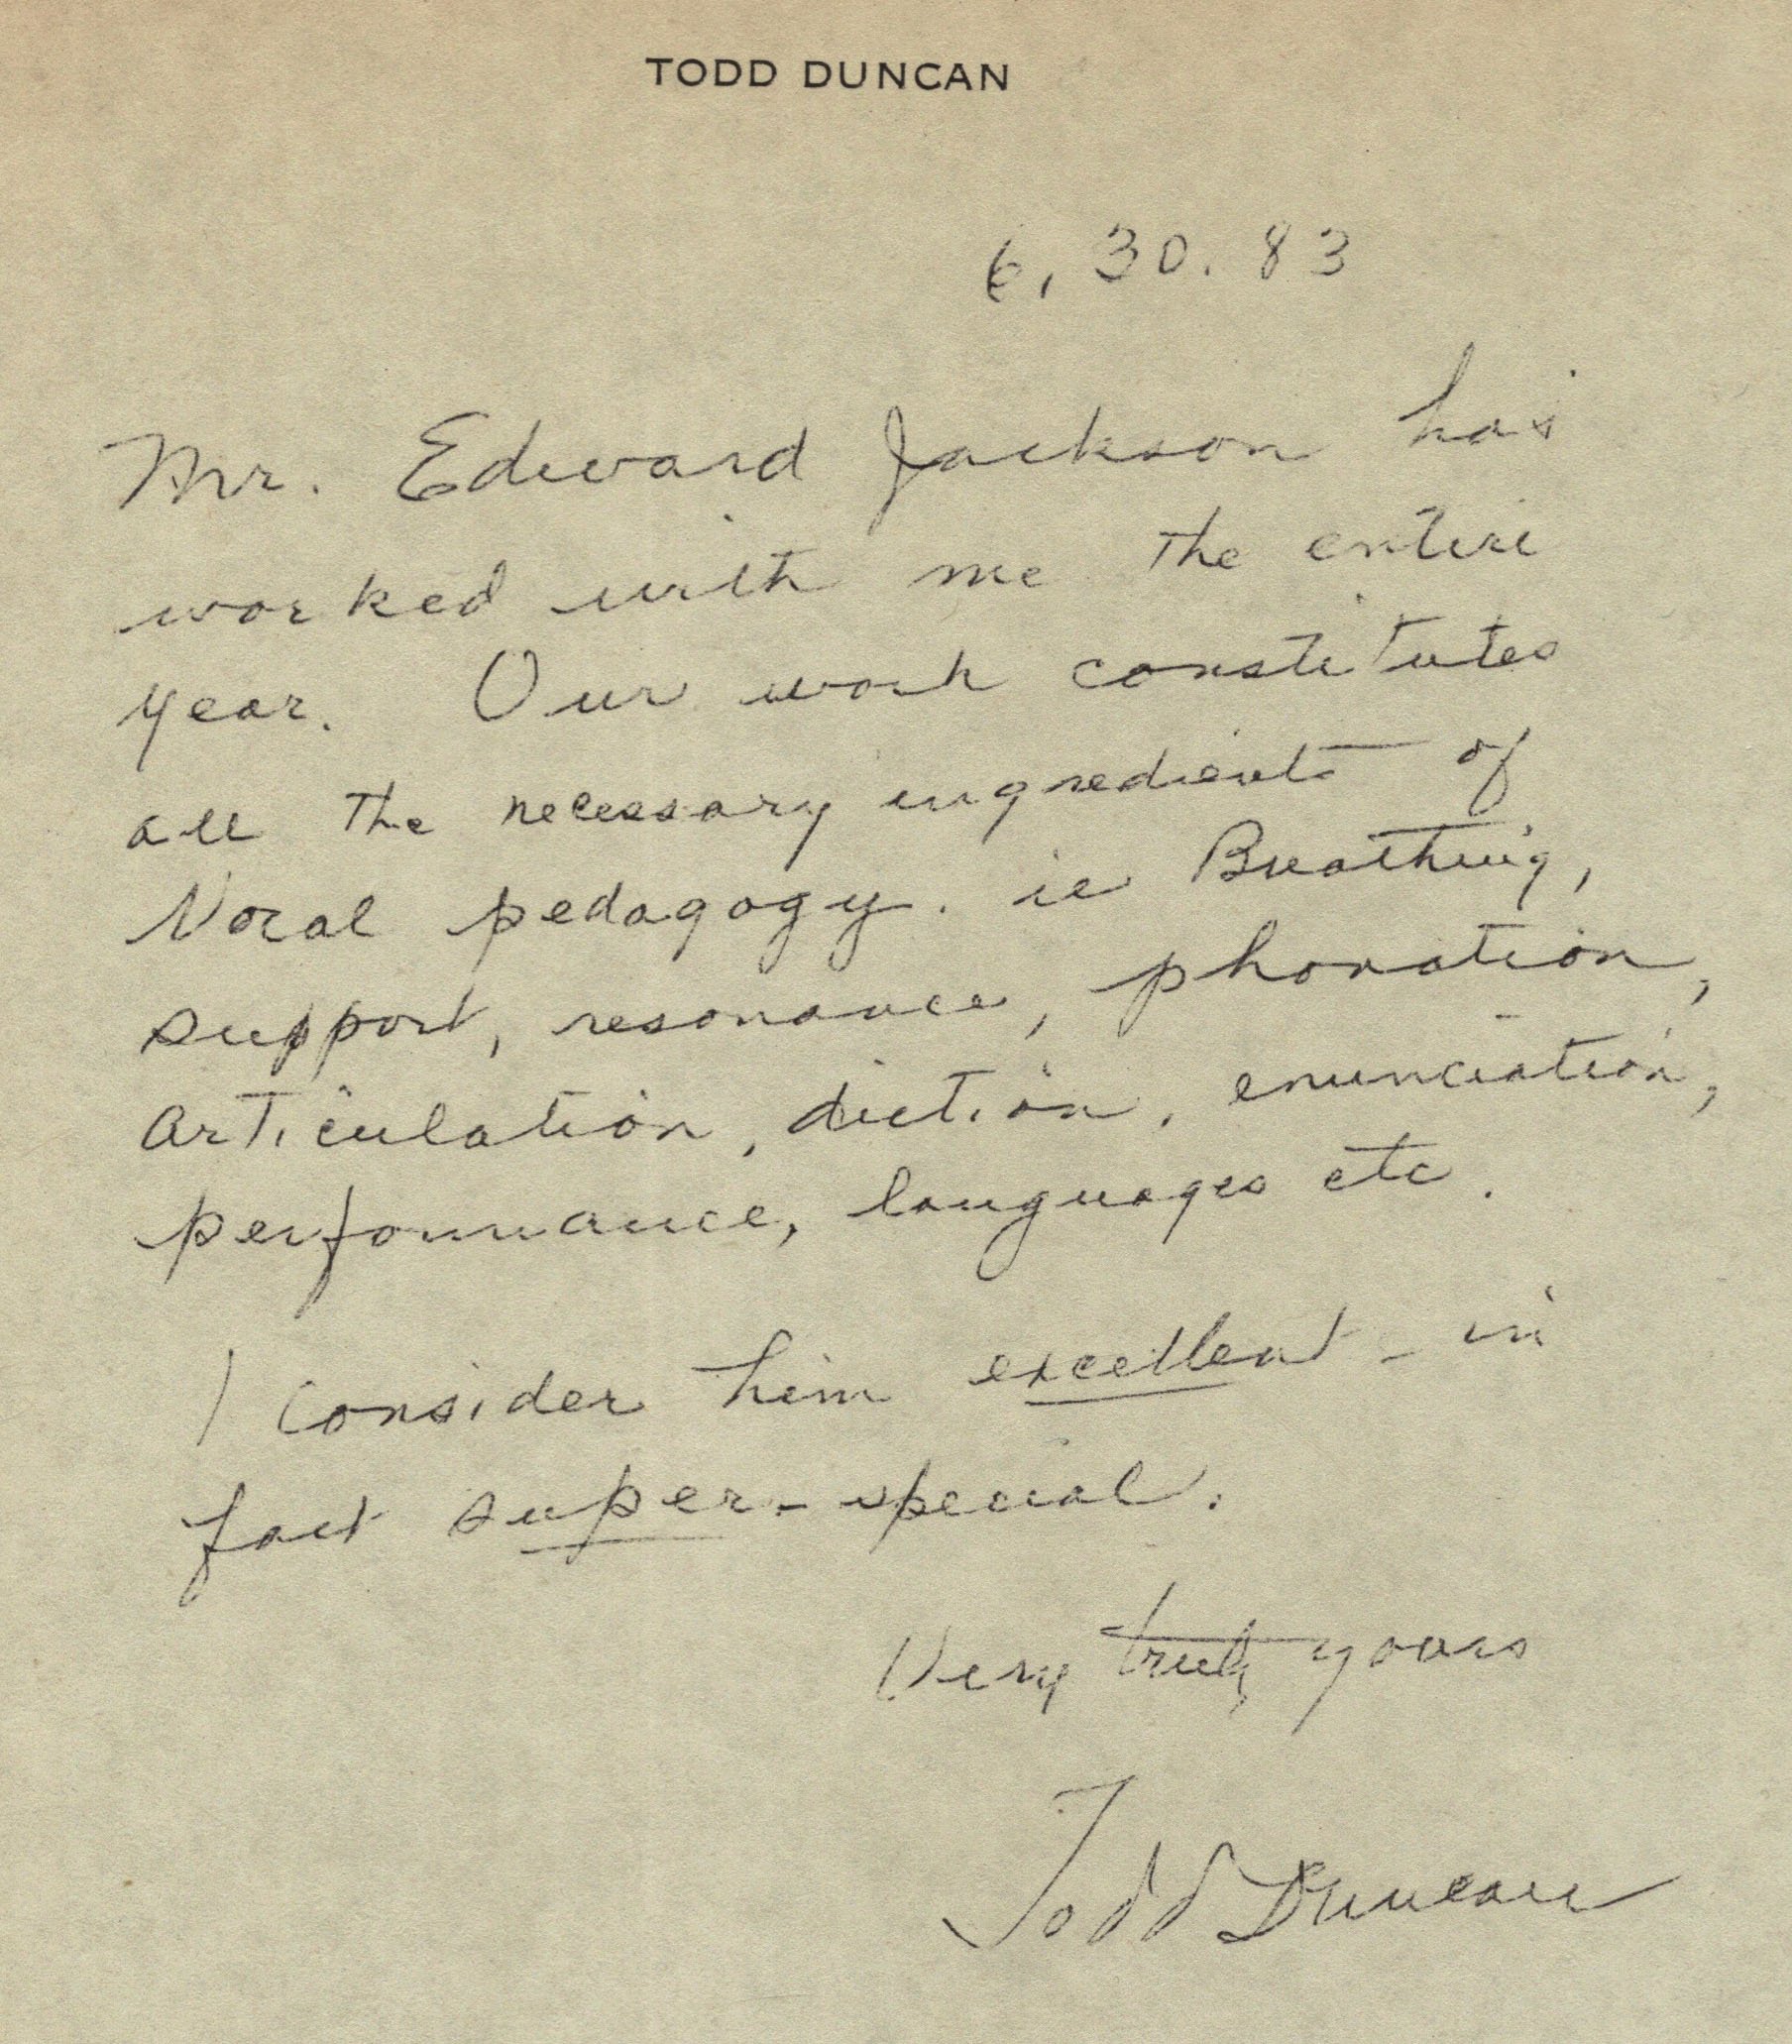 TODD DUNCAN
6. 30. 83
Mr. Edward Jackson has
worked with me the entire
year. Our work constitutes
all the necessary ingredients of
Vocal pedagogy. ie Breathing,
support, resonance, phonation,
articulation, diction, enunciation,
performance, languages etc.
I consider him excellent - in
fact super-special.
Very truly yours
Todd Duncan